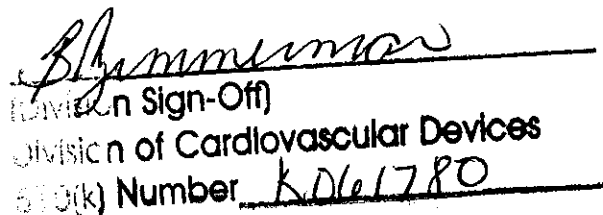 B Zimmerman
(Division Sign-Off)
Division of Cardiovascular Devices
510(k) Number K061780